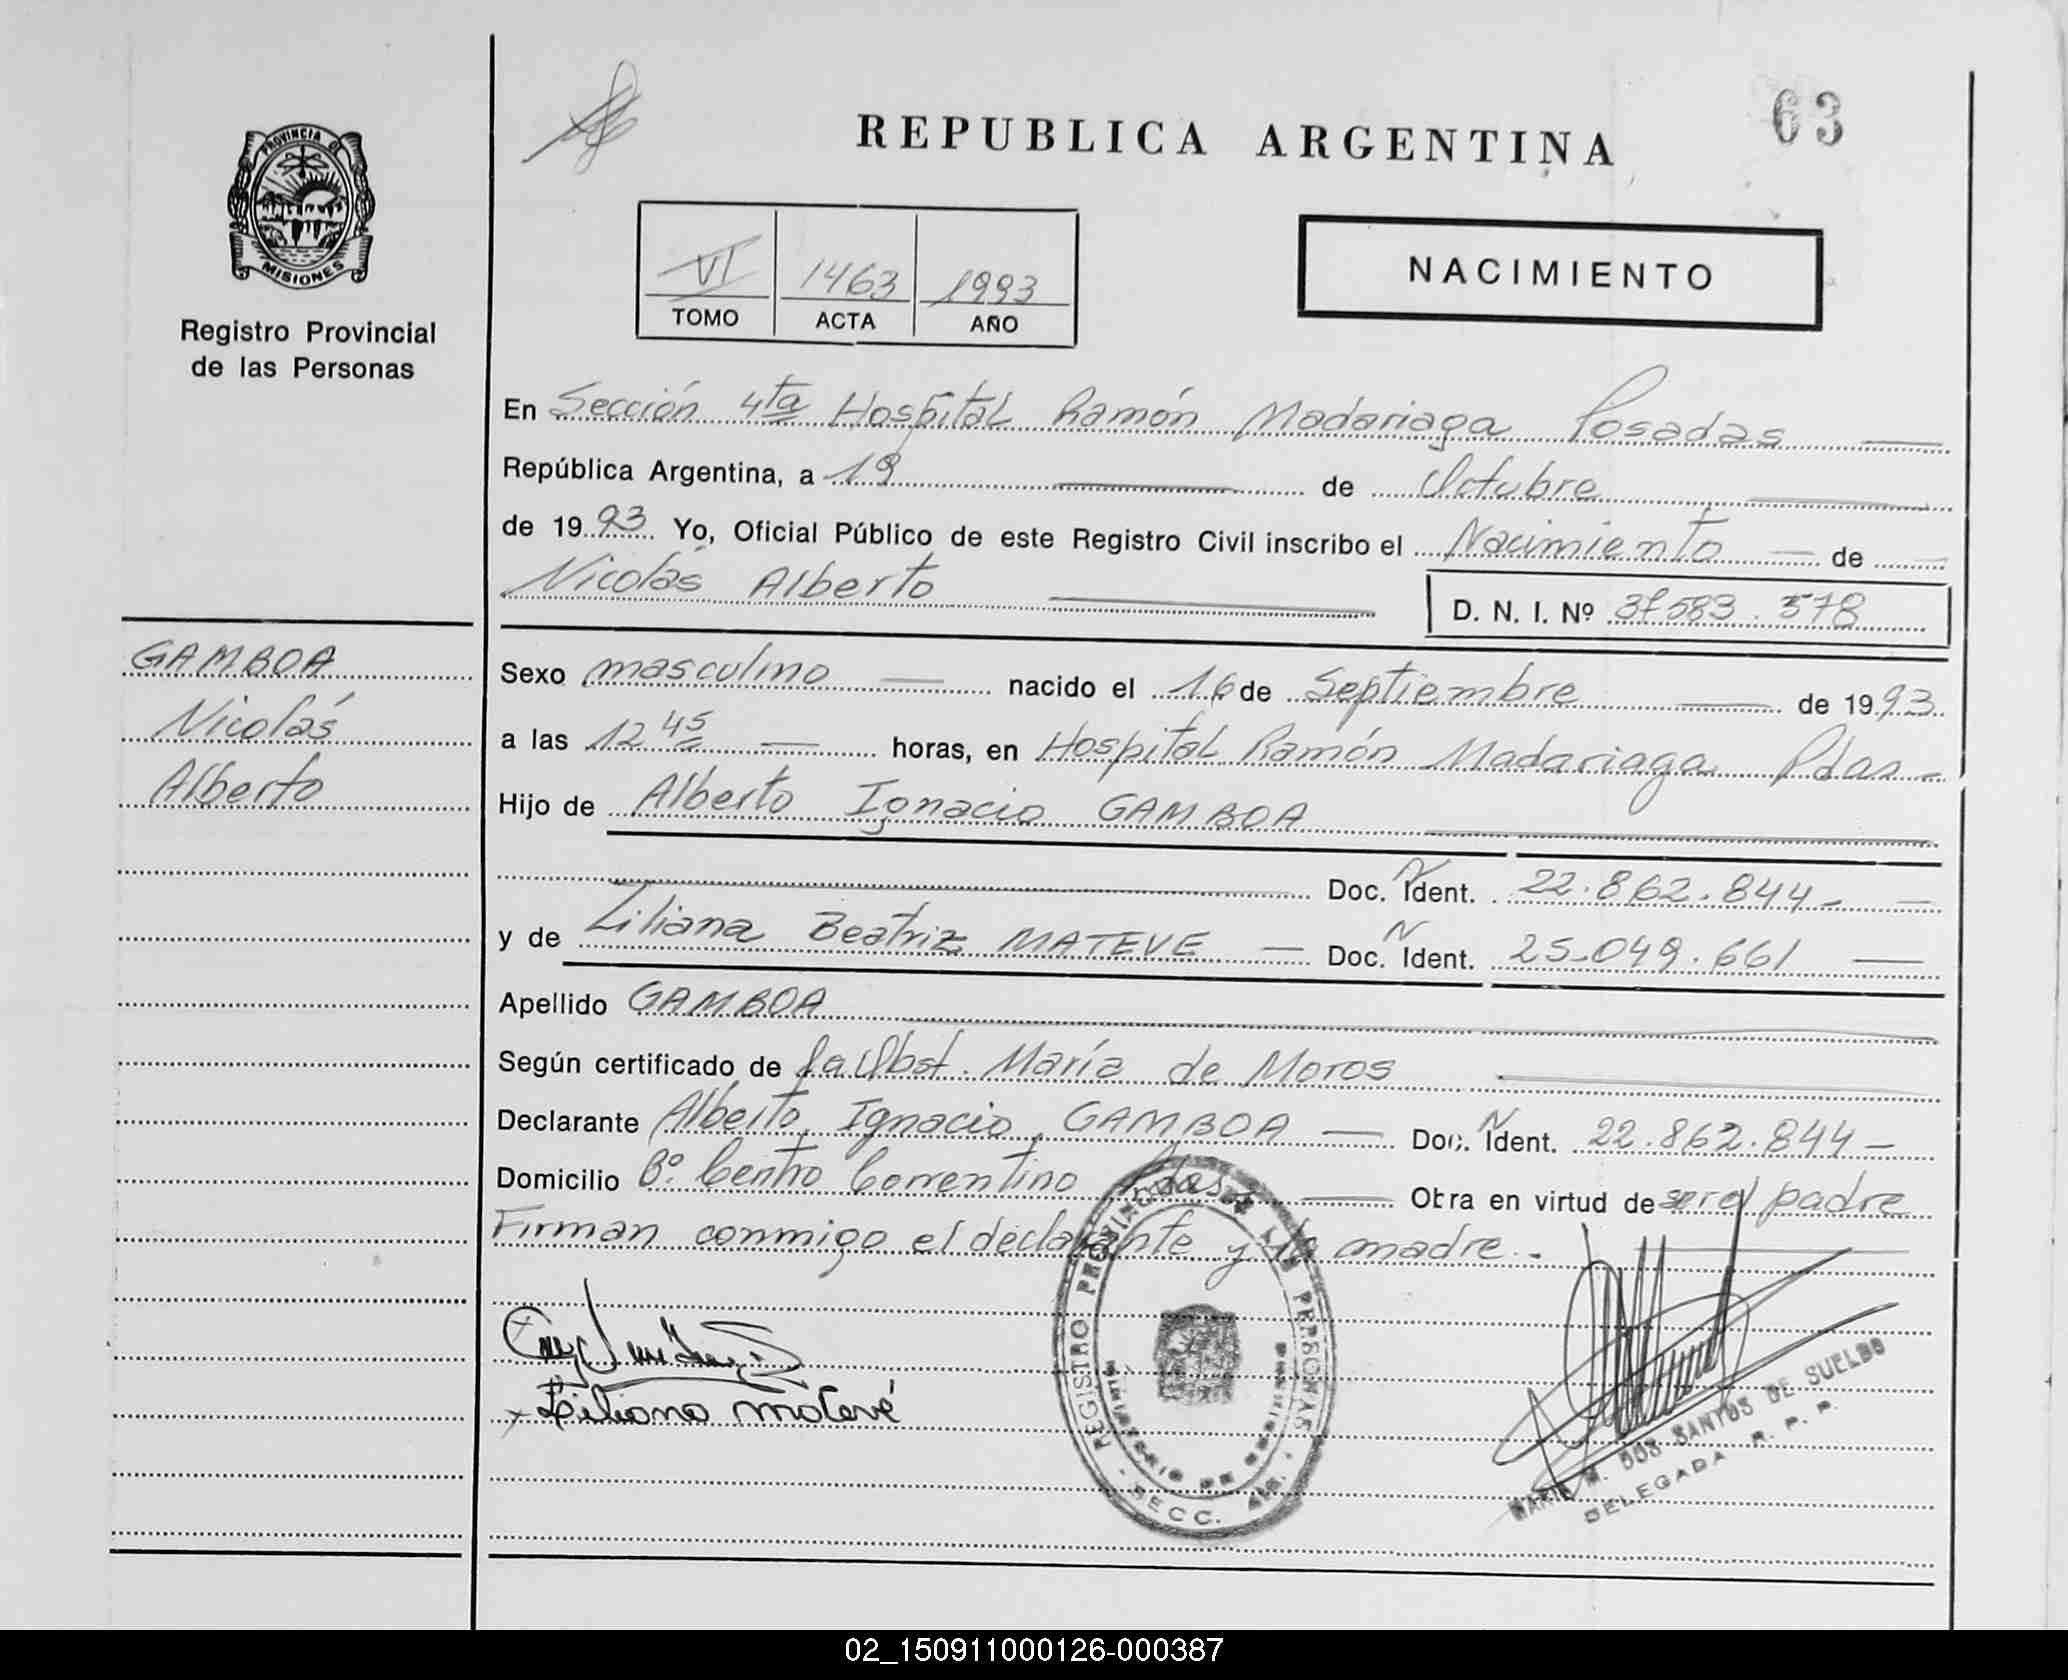 63
REPUBLICA ARGENTINA
PROVINCIA DE
MISIONES
Registro Provincial
de las Personas
VI 1463 1993
TOMO ACTA AÑO
NACIMIENTO
En Sección 4ta Hospital Ramón Madariaga Posadas
República Argentina, a 19 de Octubre
de 1993 Yo, Oficial Público de este Registro Civil inscribo el Nacimiento de
Nicolás Alberto
D. N. I. Nº 37583.578
GAMBOA
Nicolás
Alberto
Sexo masculino nacido el 16 de Septiembre de 1993
a las 12 45 horas, en Hospital Ramón Madariaga Pdas-
Hijo de Alberto Ignacio GAMBOA
Doc. N Ident. 22.862.844-
y de Liliana Beatriz MATEVE Doc. N Ident. 25.049.661
Apellido GAMBOA
Según certificado de la Obst. María de Moros
Declarante Alberto Ignacio GAMBOA Doc. N Ident. 22.862.844-
Domicilio Bº. Centro Correntino Pdas Obra en virtud de ser el padre
Firman conmigo el declarante y la madre.-
x Liliana Mateve
REGISTRO PROVINCIAL DE LAS PERSONAS
MINISTERIO DE GOBIERNO
SECC.
MARIA M. DOS SANTOS DE SUELDO
DELEGADA R. P. P.
02_150911000126-000387